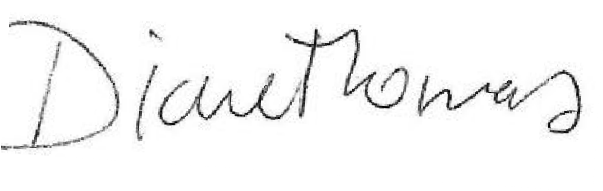 Diane Thomas